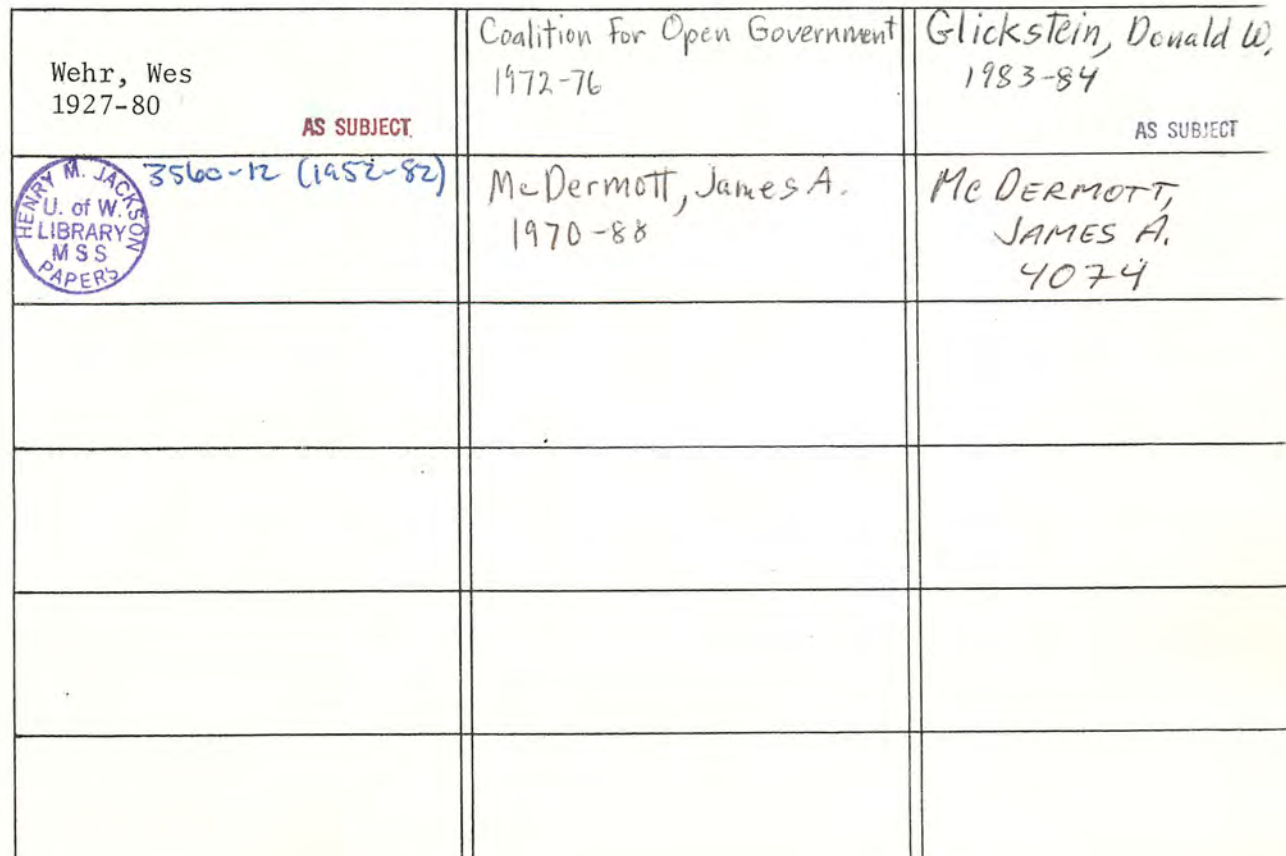 Wehr, Wes
1927-80
AS SUBJECT
Coalition For Open Government
1972-76
Glickstein, Donald W.
1983-84
AS SUBJECT
HENRY M. JACKSON
U. of W.
LIBRARY
MSS
PAPERS
3560-12 (1952-82)
McDermott, James A.
1970-88
McDERMOTT,
JAMES A.
4074